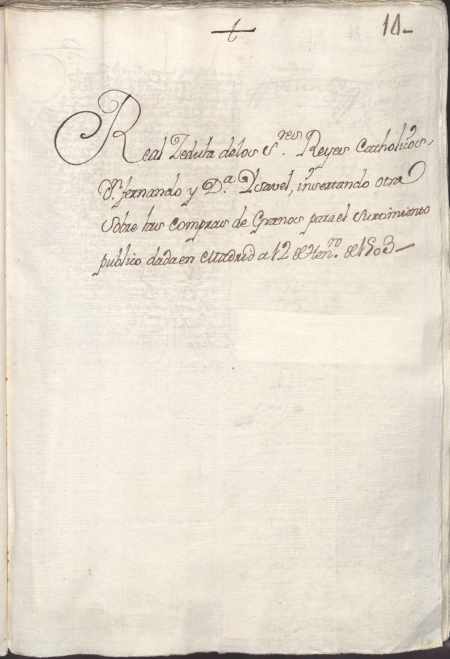 10-
Real Zedula de los S.res Reyes Catholicos,
D.n fernando y D.a Ysavel, insertando otra
Sobre las compras de Granos para el Surtimiento
publico dada en Madrid a 12 de Hen.ro de 1503-